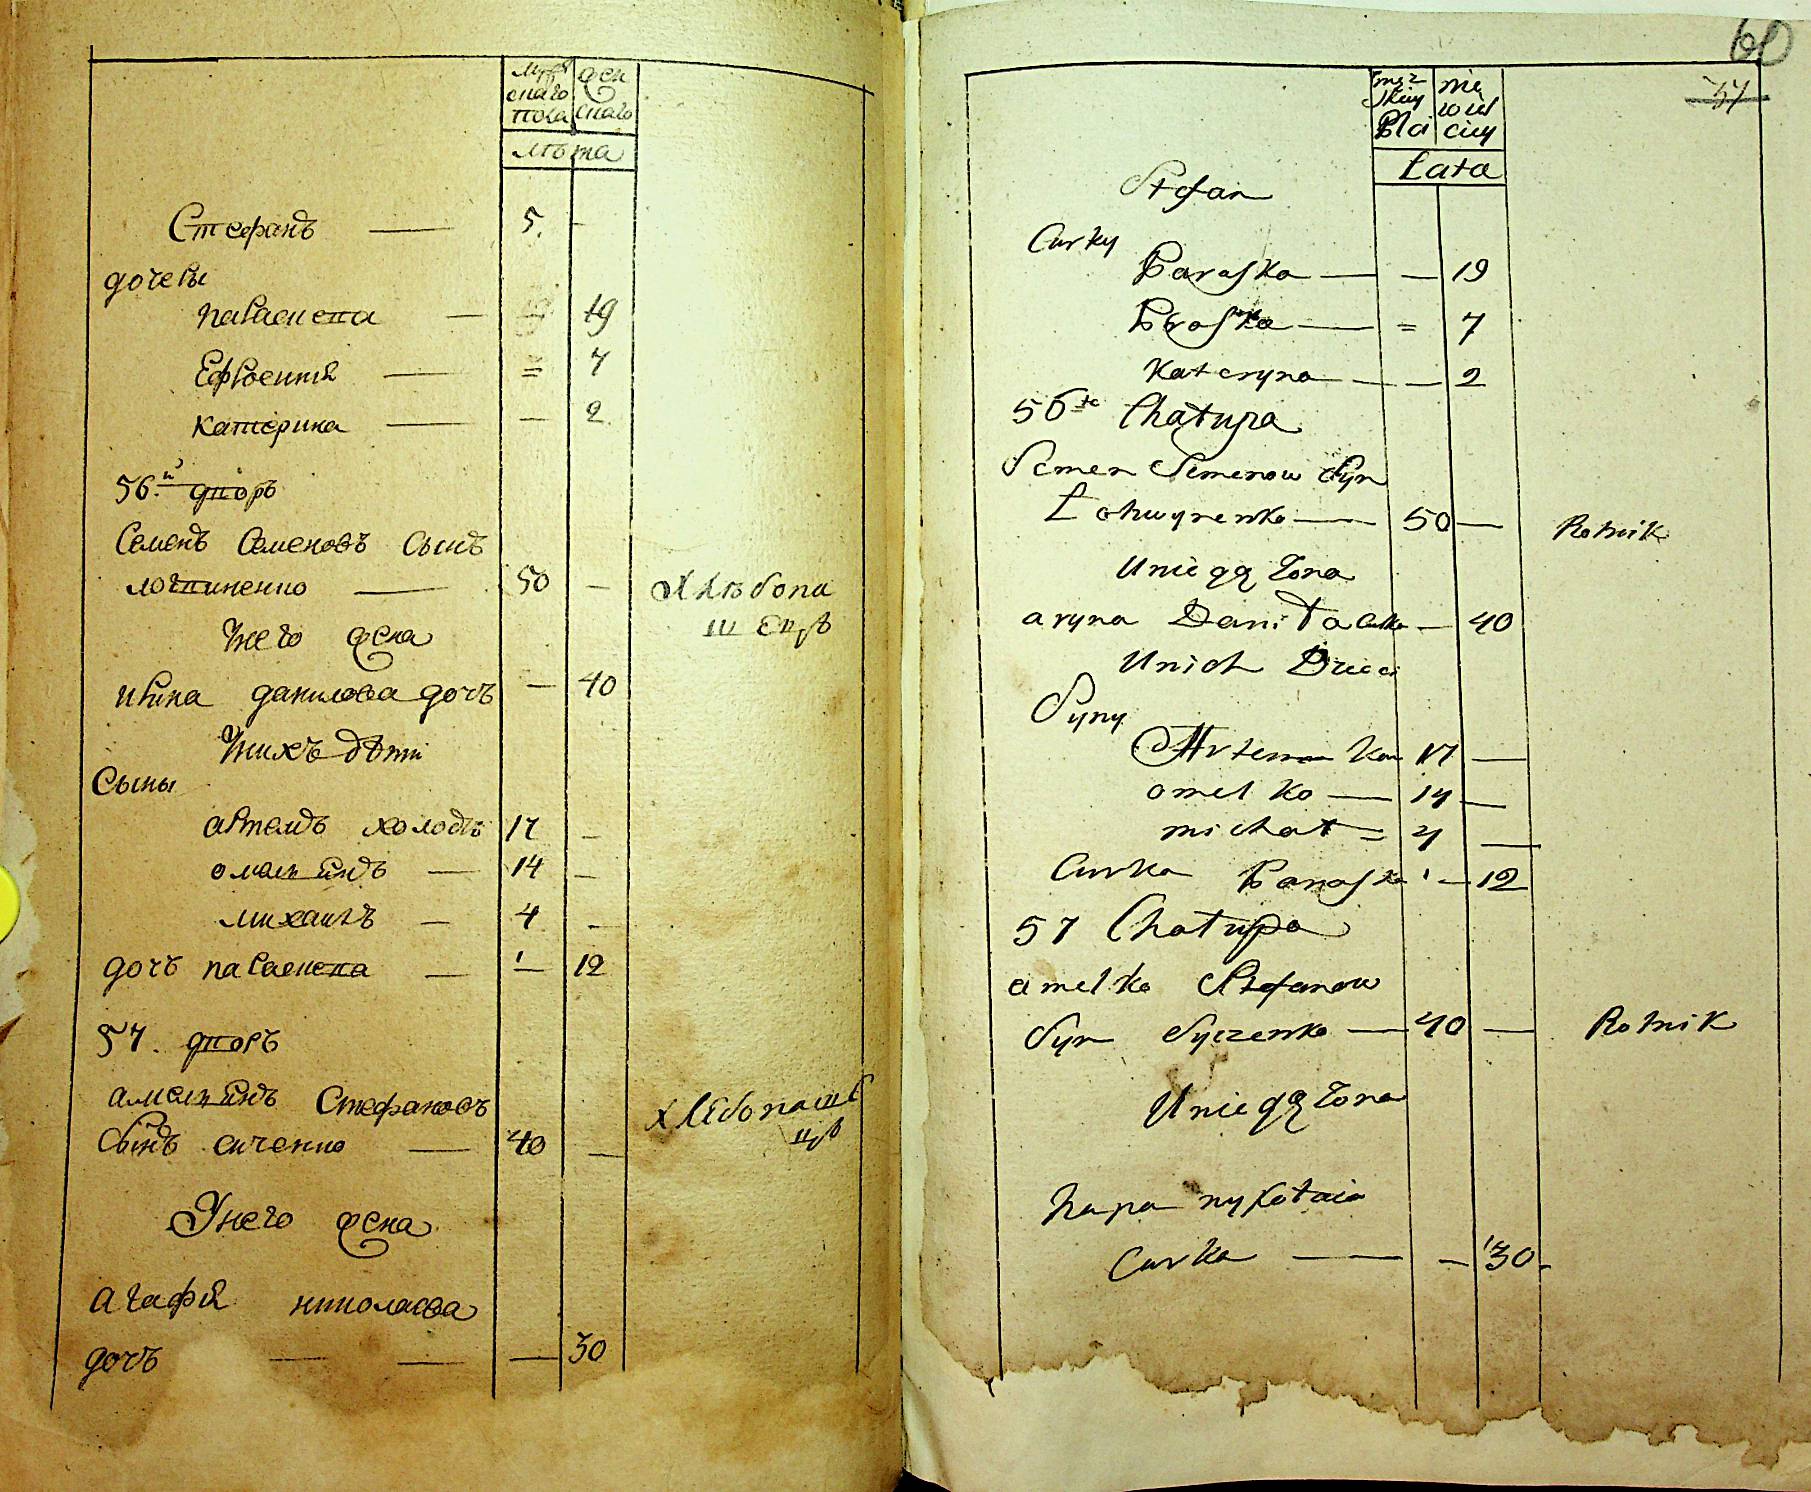 мужскаго пола женскаго
лѣта
Стефанъ — 5. -
дочеры
параскева — 19
Ефросинія — = 7
катерина — — 2
56.й дворъ
Семенъ Семеновъ сынъ
логвиненко — 50 — хлѣбопа
шецъ
Унего жена
ирина данилова дочъ — 40
Унихъ дѣти
Сыны
артемъ холостъ 17 -
омельянъ — 14 -
михаилъ — 4 -
дочъ параскева — — 12
57. дворъ
амельянъ Стефановъ
сынъ сиченко — 40 — хлебопаше
цъ
Унего жена
агафія николаева
дочъ — — — 30
60
57
męzkiey płci niewieściey
Łata
Stefan
Curky
Paraska — — 19
Proska — = 7
Kateryna — — 2
56te Chałupa
Semen Semenow Syn
Łohwynenko — 50 — Rolnik
Uniego Żona
aryna Daniła Curka — 40
Unich Dzieci
Syny
Artem Kaw 17 —
omelko — 14 —
michał = 4 —
Curka Paraska — 12
57 Chałupa
amelko Stefanow
Syn Syczenko — 40 — Rolnik
Uniego Żona
hapa nykołaia
Curka — — 30